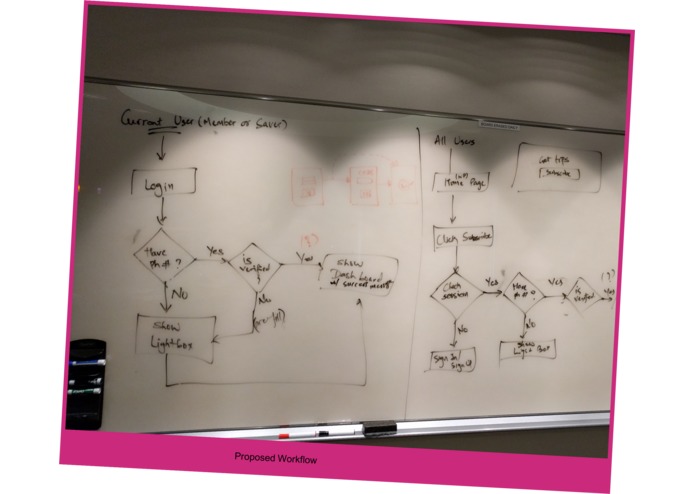 Current User (Member or Saver)
Login
Have
Ph #?
Yes
is
verified
?
Yes
(?)
Show
Dashboard
w/ current
No
No
Show
Lightbox
All Users
Home Page
Get tips
[Subscribe]
Click Subscribe
Check
session
Yes
Have
Ph #?
Yes
is
verified
(?)
Yes
No
No
Sign In/
Sign Up
Show
Light Box
Proposed Workflow